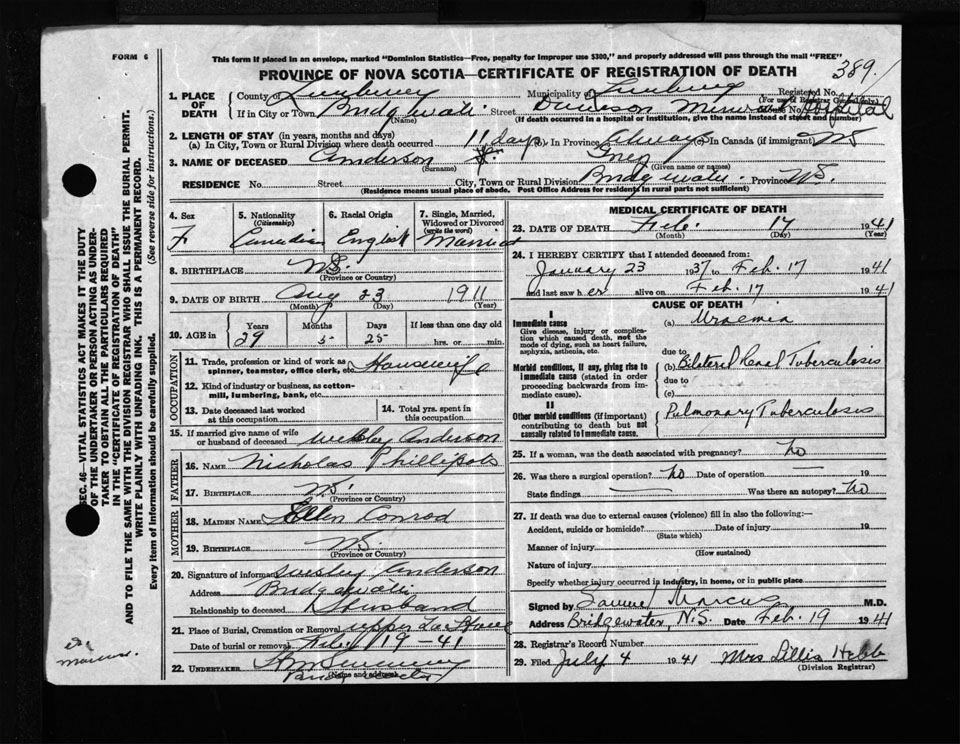 FORM 6
This form if placed in an envelope, marked "Dominion Statistics—Free, penalty for improper use $300," and properly addressed will pass through the mail "FREE"
389
PROVINCE OF NOVA SCOTIA—CERTIFICATE OF REGISTRATION OF DEATH
1. PLACE OF DEATH
County of Lunenburg Municipality of Lunenburg Registered No.
(For use of Registrar General only.)
If in City or Town Bridgewater Street Dawson Memorial Hospital House No.
(Name) (If death occurred in a hospital or institution, give the name instead of street and number)
2. LENGTH OF STAY (in years, months and days)
(a) In City, Town or Rural Division where death occurred 11 days (b) In Province Always (c) In Canada (if immigrant) NS
3. NAME OF DECEASED Anderson
(Surname) (Given name or names)
RESIDENCE No. Street City, Town or Rural Division Bridgewater Province N.S.
(Residence means usual place of abode. Post Office Address for residents in rural parts not sufficient)
4. Sex
F
5. Nationality
(Citizenship)
Canadian
6. Racial Origin
English
7. Single, Married, Widowed or Divorced
(write the word)
Married
8. BIRTHPLACE NS
(Province or Country)
9. DATE OF BIRTH Aug 23 1911
(Month) (Day) (Year)
10. AGE in Years Months Days If less than one day old
29 5 25 hrs. or min.
OCCUPATION
11. Trade, profession or kind of work as spinner, teamster, office clerk, etc. Housewife
12. Kind of industry or business, as cotton-mill, lumbering, bank, etc.
13. Date deceased last worked at this occupation
14. Total yrs. spent in this occupation
15. If married give name of wife or husband of deceased Wesley Anderson
FATHER
16. NAME Nicholas Phillpots
17. BIRTHPLACE N.S.
(Province or Country)
MOTHER
18. MAIDEN NAME Ellen Conrod
19. BIRTHPLACE N.S.
(Province or Country)
20. Signature of informant Wesley Anderson
Address Bridgewater
Relationship to deceased Husband
21. Place of Burial, Cremation or Removal Upper La Have
Date of burial or removal Feb 19 - 41
22. UNDERTAKER
(Name and address)
MEDICAL CERTIFICATE OF DEATH
23. DATE OF DEATH Feb. 17 1941
(Month) (Day) (Year)
24. I HEREBY CERTIFY that I attended deceased from:
January 23 1937 to Feb. 17 1941
and last saw her alive on Feb. 17 1941
CAUSE OF DEATH
I
Immediate cause
Give disease, injury or complication which caused death, not the mode of dying, such as heart failure, asphyxia, asthenia, etc.
(a) Uraemia
due to
Morbid conditions, if any, giving rise to immediate cause (stated in order proceeding backwards from immediate cause).
(b) Bilateral Renal Tuberculosis
due to
(c)
II
Other morbid conditions (if important) contributing to death but not causally related to immediate cause.
Pulmonary Tuberculosis
25. If a woman, was the death associated with pregnancy? No
26. Was there a surgical operation? No Date of operation — 19
State findings — Was there an autopsy? No
27. If death was due to external causes (violence) fill in also the following:—
Accident, suicide or homicide? Date of injury 19
(State which)
Manner of injury
(How sustained)
Nature of injury
Specify whether injury occurred in industry, in home, or in public place
Signed by Samuel Marcus M.D.
Address Bridgewater, N.S. Date Feb. 19 1941
28. Registrar's Record Number
29. Filed July 4 1941 Mrs Lillis Hebb
(Division Registrar)
SEC. 46—VITAL STATISTICS ACT MAKES IT THE DUTY
OF THE UNDERTAKER OR PERSON ACTING AS UNDER-
TAKER TO OBTAIN ALL THE PARTICULARS REQUIRED
IN THE "CERTIFICATE OF REGISTRATION OF DEATH"
AND TO FILE THE SAME WITH THE DIVISION REGISTRAR WHO SHALL ISSUE THE BURIAL PERMIT.
WRITE PLAINLY WITH UNFADING INK. THIS IS A PERMANENT RECORD.
Every item of information should be carefully supplied. (See reverse side for instructions.)
Marcus.